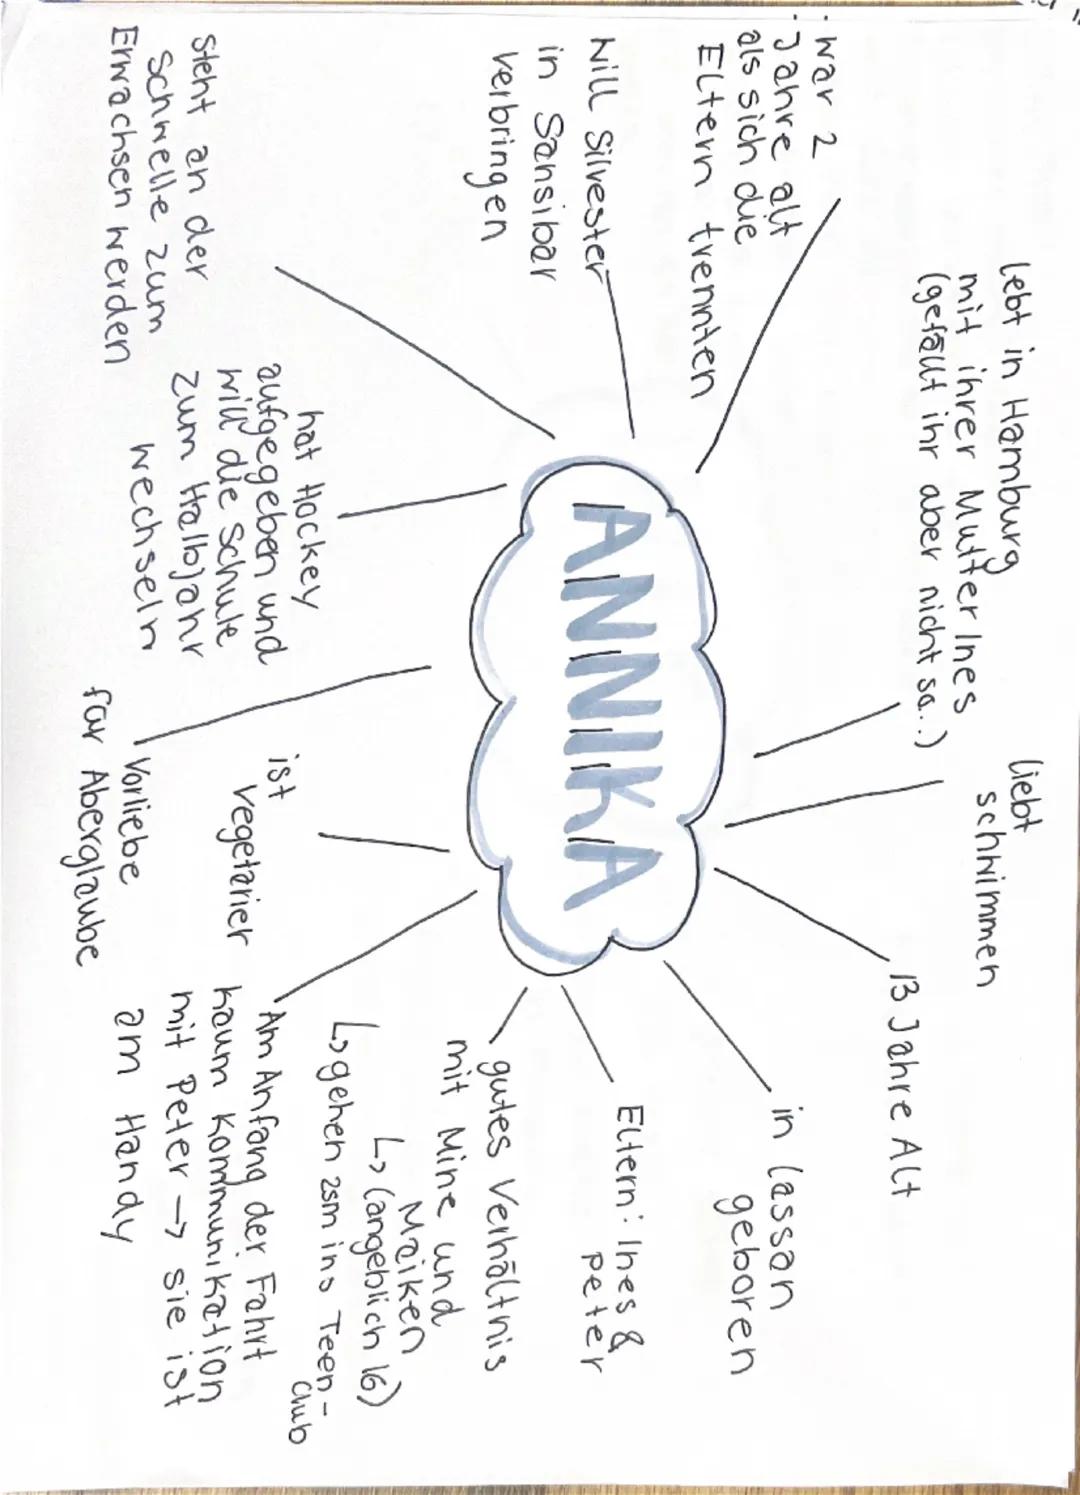 lebt in Hamburg
mit ihrer Mutter Ines
(gefällt ihr aber nicht so..)
liebt
schwimmen
13 Jahre Alt
in Lassan
geboren
Eltern: Ines &
Peter
gutes Verhältnis
mit Mine und
Maiken
↳ (angeblich 16)
↳ gehen zsm ins Teen-
Club
Am Anfang der Fahrt
kaum Kommunikation
mit Peter → sie ist
am Handy
ist
vegetarier
Vorliebe
für Aberglaube
hat Hockey
aufgegeben und
will die Schule
zum Halbjahr
wechseln
steht an der
Schwelle zum
Erwachsen werden
Will Silvester
in Sansibar
verbringen
war 2
Jahre alt
als sich die
Eltern trennten
ANNIKA